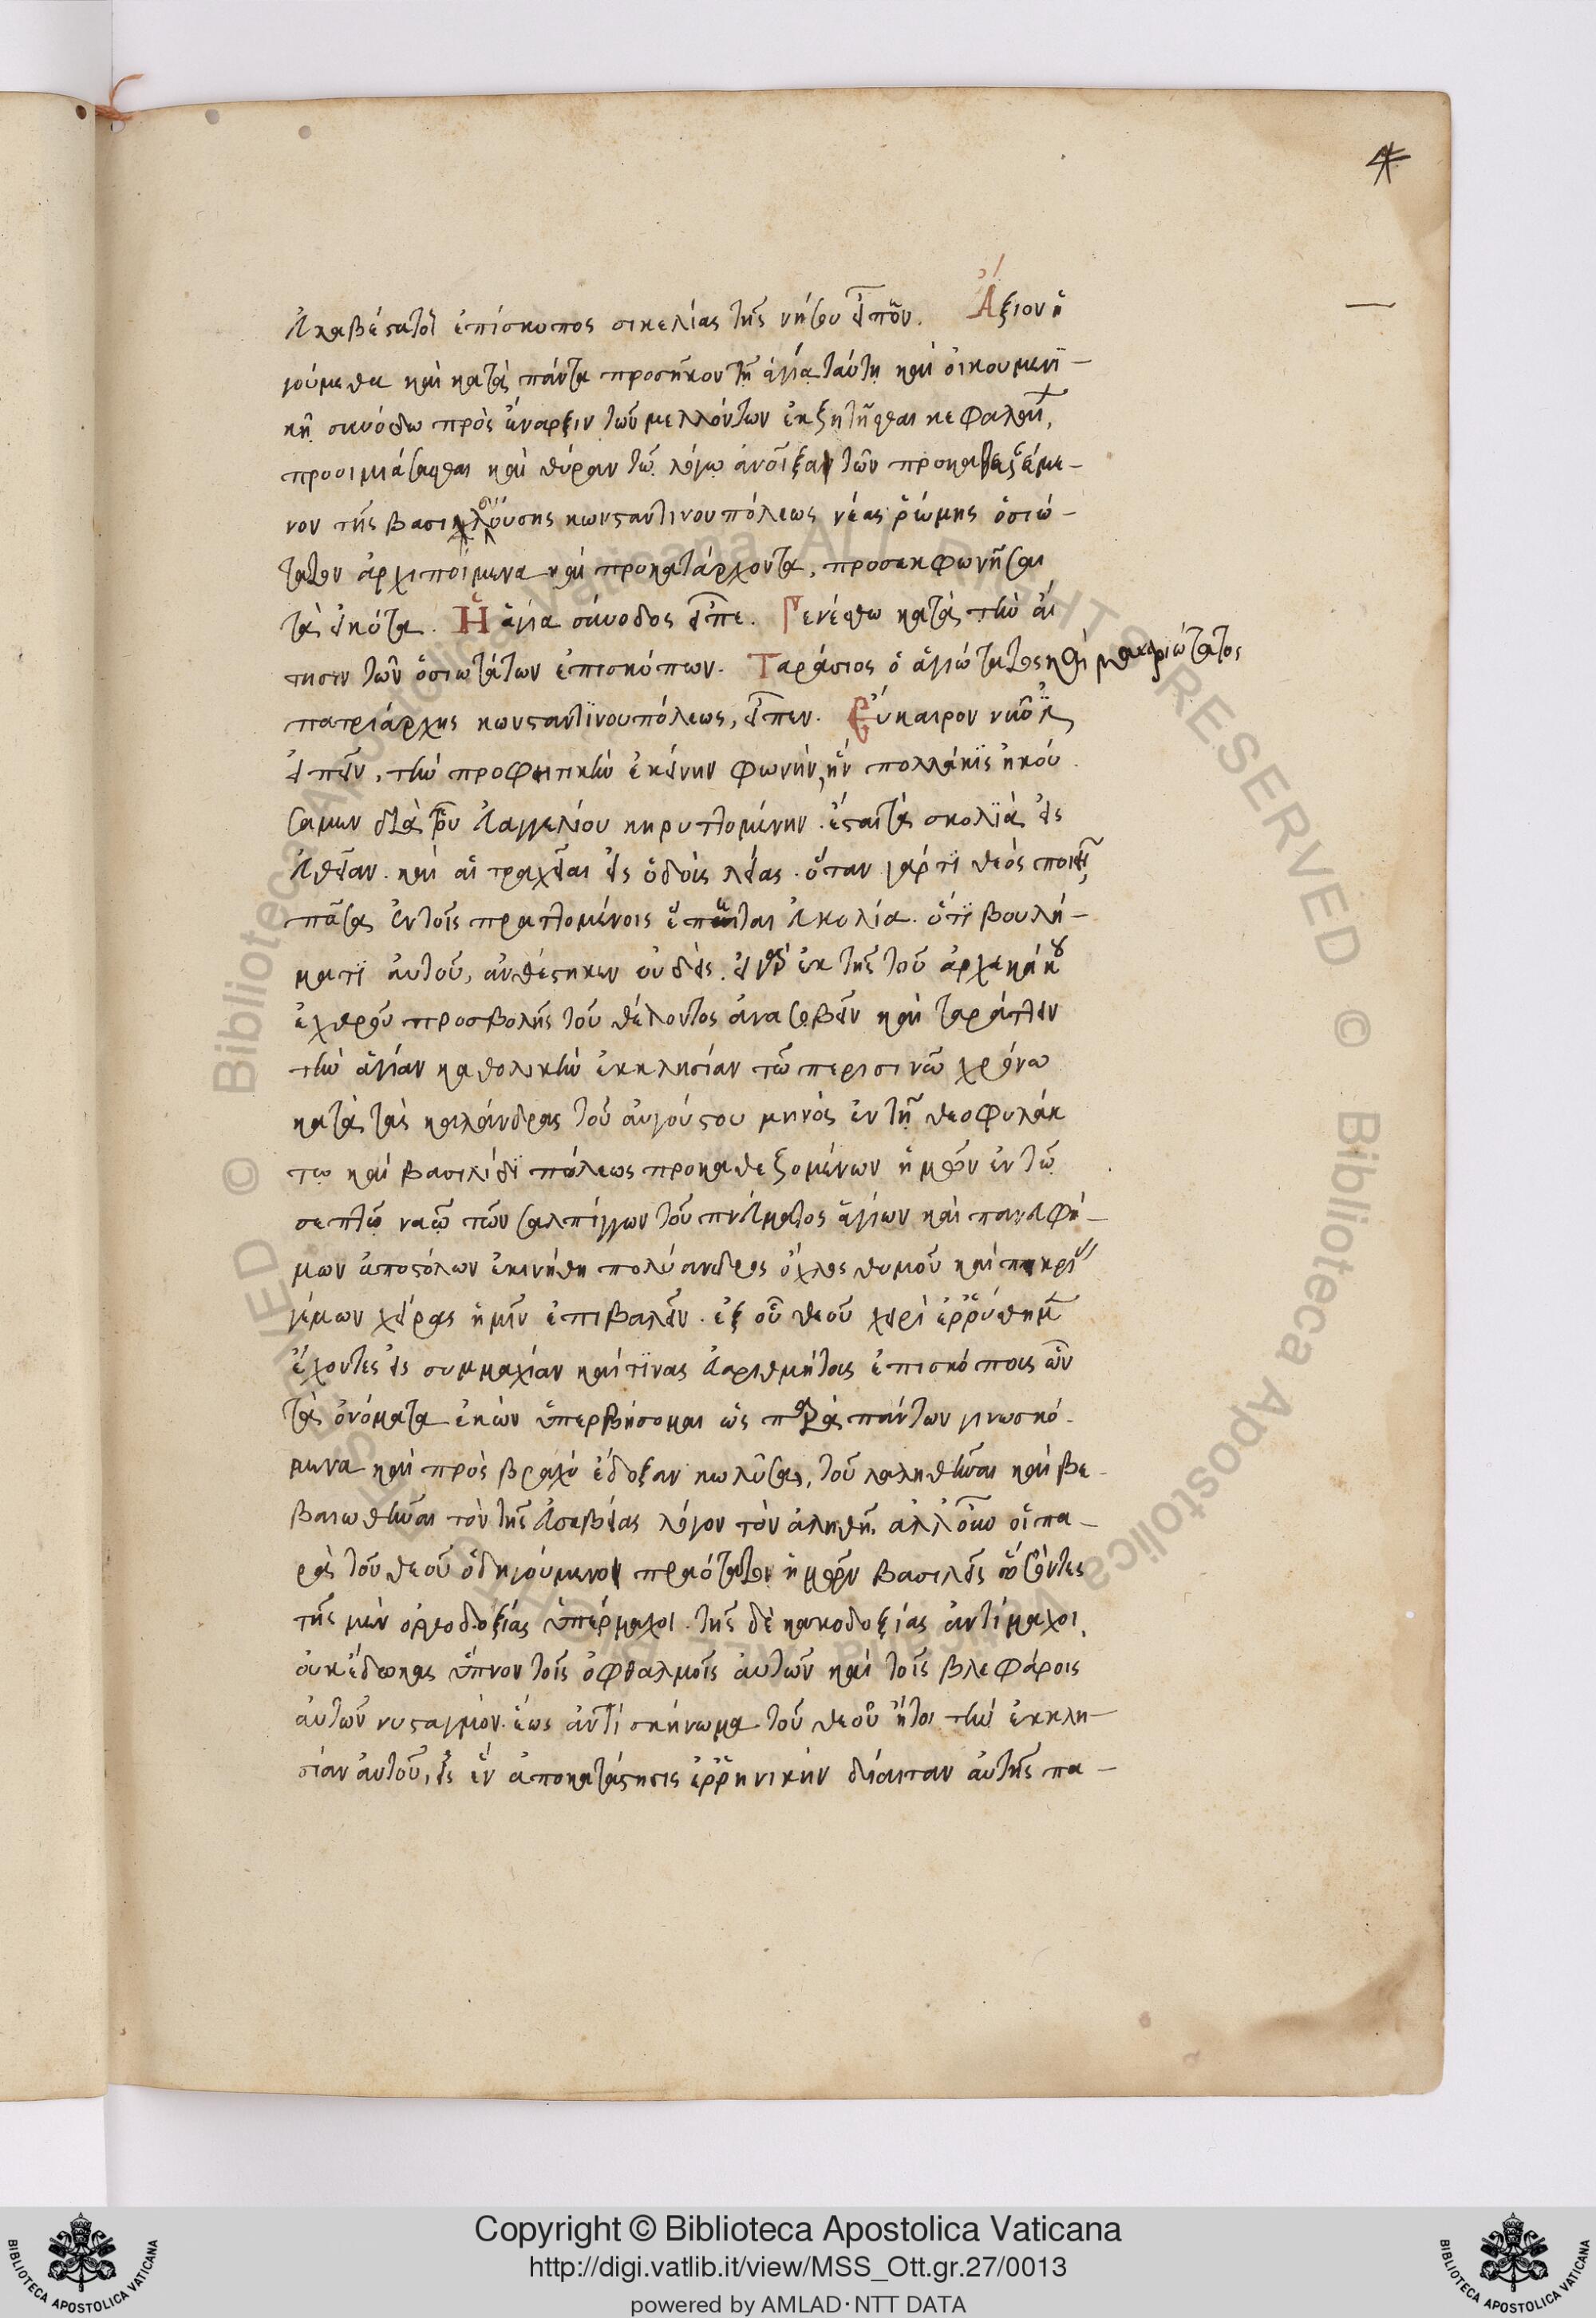 εὐλαβέστατοι ἐπίσκοπος σικελίας τῆς νήσου εἶπον. Ἄξιον ἡ
γούμεθα καὶ κατὰ πάντα προσῆκον τῇ ἁγία ταύτῃ καὶ οἰκουμενϊ-
κῇ συνόδω πρὸς ἔναρξιν τῶν μελλόντων ἐκζητῆσθαι κεφαλαίων,
προοιμιάσασθαι καὶ θύραν τῶ λόγω ἀνοῖξαι τὸν προκαθεζόμε-
νον τῆς βασιλευούσης κωνσταντινουπόλεως νέας ῥώμης ὁσιώ-
τατον ἀρχιποίμενα καὶ προκατάρχοντα, προσεκφωνῆσαι
τὰ εἰκότα. Ἡ ἁγία σύνοδος εἶπε. Γενέσθω κατὰ τὴν αἴ
τησιν τῶν ὁσιωτάτων ἐπισκόπων. Ταράσιος ὁ ἁγιώτατος καὶ μακαριώτατος
πατριάρχης κωνσταντϊνουπόλεως, εἶπεν. Εὔκαιρον νῦν
εἰπεῖν, τὴν προφητικὴν ἐκείνην φωνὴν, ἣν πολλάκϊς ἠκού
σαμεν διὰ τοῦ εὐαγγελίου κηρυττομένην. ἔσται τὰ σκολϊὰ εἰς
εὐθεῖαν. καὶ αἱ τραχεῖαι εἰς ὁδοὺς λείας. ὅταν γάρ τι θεὸς ποιεῖ,
πᾶσα ἐν τοῖς πραττομένοις ἕπεται εὐκολία. ὅτι βουλή-
ματι αὐτοῦ, ἀνθέστηκεν οὐδείς. εἰ γὰρ ἐκ τῆς τοῦ ἀρχεκάκου
ἐχθροῦ προσβολῆς τοῦ θέλοντος ἀνασοβεῖν καὶ ταράττειν
τὴν ἁγίαν καθολικὴν ἐκκλησίαν τῶ περισινῶ χρόνω
κατὰ τὰς καλάνδρας τοῦ αὐγούστου μηνὸς ἐν τῇ θεοφυλάκ
τω καὶ βασιλίδϊ πόλεως προκαθεζομένων ἡμῶν ἐν τῶ
σεπτῶ ναῶ τῶν σαλπίγγων τοῦ πνεύματος ἁγίων καὶ πανευφή-
μων ἀποστόλων ἐκινήθη πολύανδρος ὄχλος θυμοῦ καὶ πικρίας
γέμων χεῖρας ἡμῖν ἐπιβαλεῖν. ἐξ οὗ θεοῦ χειρὶ ἐρρύσθημεν
ἔχοντες εἰς συμμαχίαν καί τϊνας εὐαριθμήτους ἐπισκόπους ὧν
τὰ ὀνόματα ἑκὼν ὑπερβήσομαι ὡς παρὰ πάντων γινωσκό-
μενα καὶ πρὸς βραχὺ ἔδοξαν κωλῦσαι, τοῦ λαληθῆναι καὶ βε-
βαιωθῆναι τὸν τῆς εὐσεβείας λόγον τὸν ἀληθῆ. ἀλλ' οὖν οἱ πα-
ρὰ τοῦ θεοῦ ὁδηγούμενοι πραότατοι ἡμῶν βασιλεῖς ὄντες
τῆς μὲν ὀρθοδοξίας ὑπέρμαχοι. τῆς δὲ κακοδοξίας ἀντίμαχοι,
οὐκ ἔδωκας ὕπνον τοῖς ὀφθαλμοῖς αὐτῶν καὶ τοῖς βλεφάροις
αὐτῶν νυσταγμόν. ἕως ἀντὶ σκήνωμα τοῦ θεοῦ ἤτοι τὴν ἐκκλη-
σίαν αὐτοῦ, εἰς ἓν ἀποκατάστησις εἰρηνικὴν δίαιταν αὐτῆς πα-
Copyright © Biblioteca Apostolica Vaticana
http://digi.vatlib.it/view/MSS_Ott.gr.27/0013
powered by AMLAD·NTT DATA